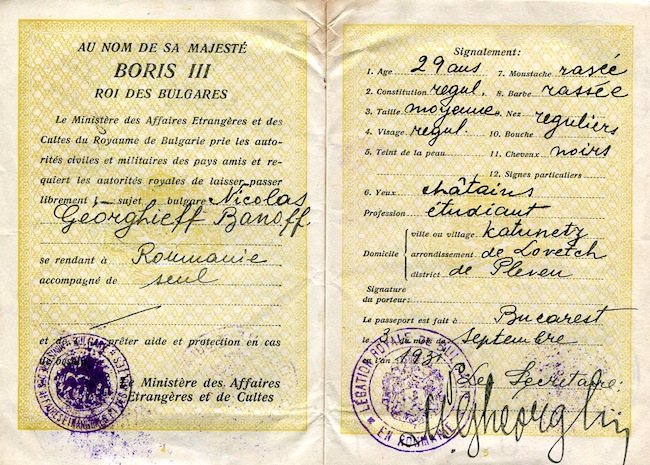 AU NOM DE SA MAJESTÉ
BORIS III
ROI DES BULGARES
Le Ministère des Affaires Etrangères et des
Cultes du Royaume de Bulgarie prie les auto-
rités civiles et militaires des pays amis et re-
quiert les autorités royales de laisser passer
librement l sujet bulgare Nicolas
Géorghieff Banoff
se rendant à Roumanie
accompagné de seul
et de prêter aide et protection en cas
de besoin
Le Ministère des Affaires
Etrangères et de Cultes
4
Signalement:
1. Age 29 ans 7. Moustache rasée
2. Constitution regul. 8. Barbe rassée
3. Taille moyenne 9. Nez reguliers
4. Visage regul. 10. Bouche
5. Teint de la peau 11. Cheveux noirs
12. Signes particuliers
6. Yeux châtains
Profession étudiant
Domicile
ville ou village Katunetz
arrondissement de Lovetch
district de Pleven
Signature
du porteur:
Le passeport est fait à Bucarest
le 3 du mois de septembre
en l'an 1931
Le Secretaire:
LEGATION ROYALE DE BULGARIE
EN ROUMANIE
5